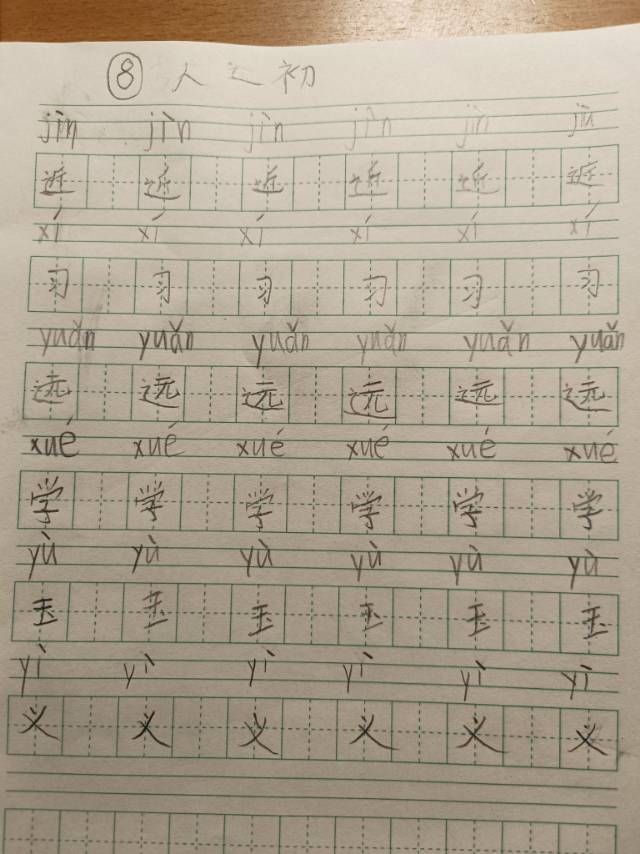 ⑧ 人之初
jìn jìn jìn jìn jìn jìn
近 近 近 近 近 近
xí xí xí xí xí xí
习 习 习 习 习 习
yuǎn yuǎn yuǎn yuǎn yuǎn yuǎn
远 远 远 远 远 远
xué xué xué xué xué xué
学 学 学 学 学 学
yù yù yù yù yù yù
玉 玉 玉 玉 玉 玉
yì yì yì yì yì yì
义 义 义 义 义 义